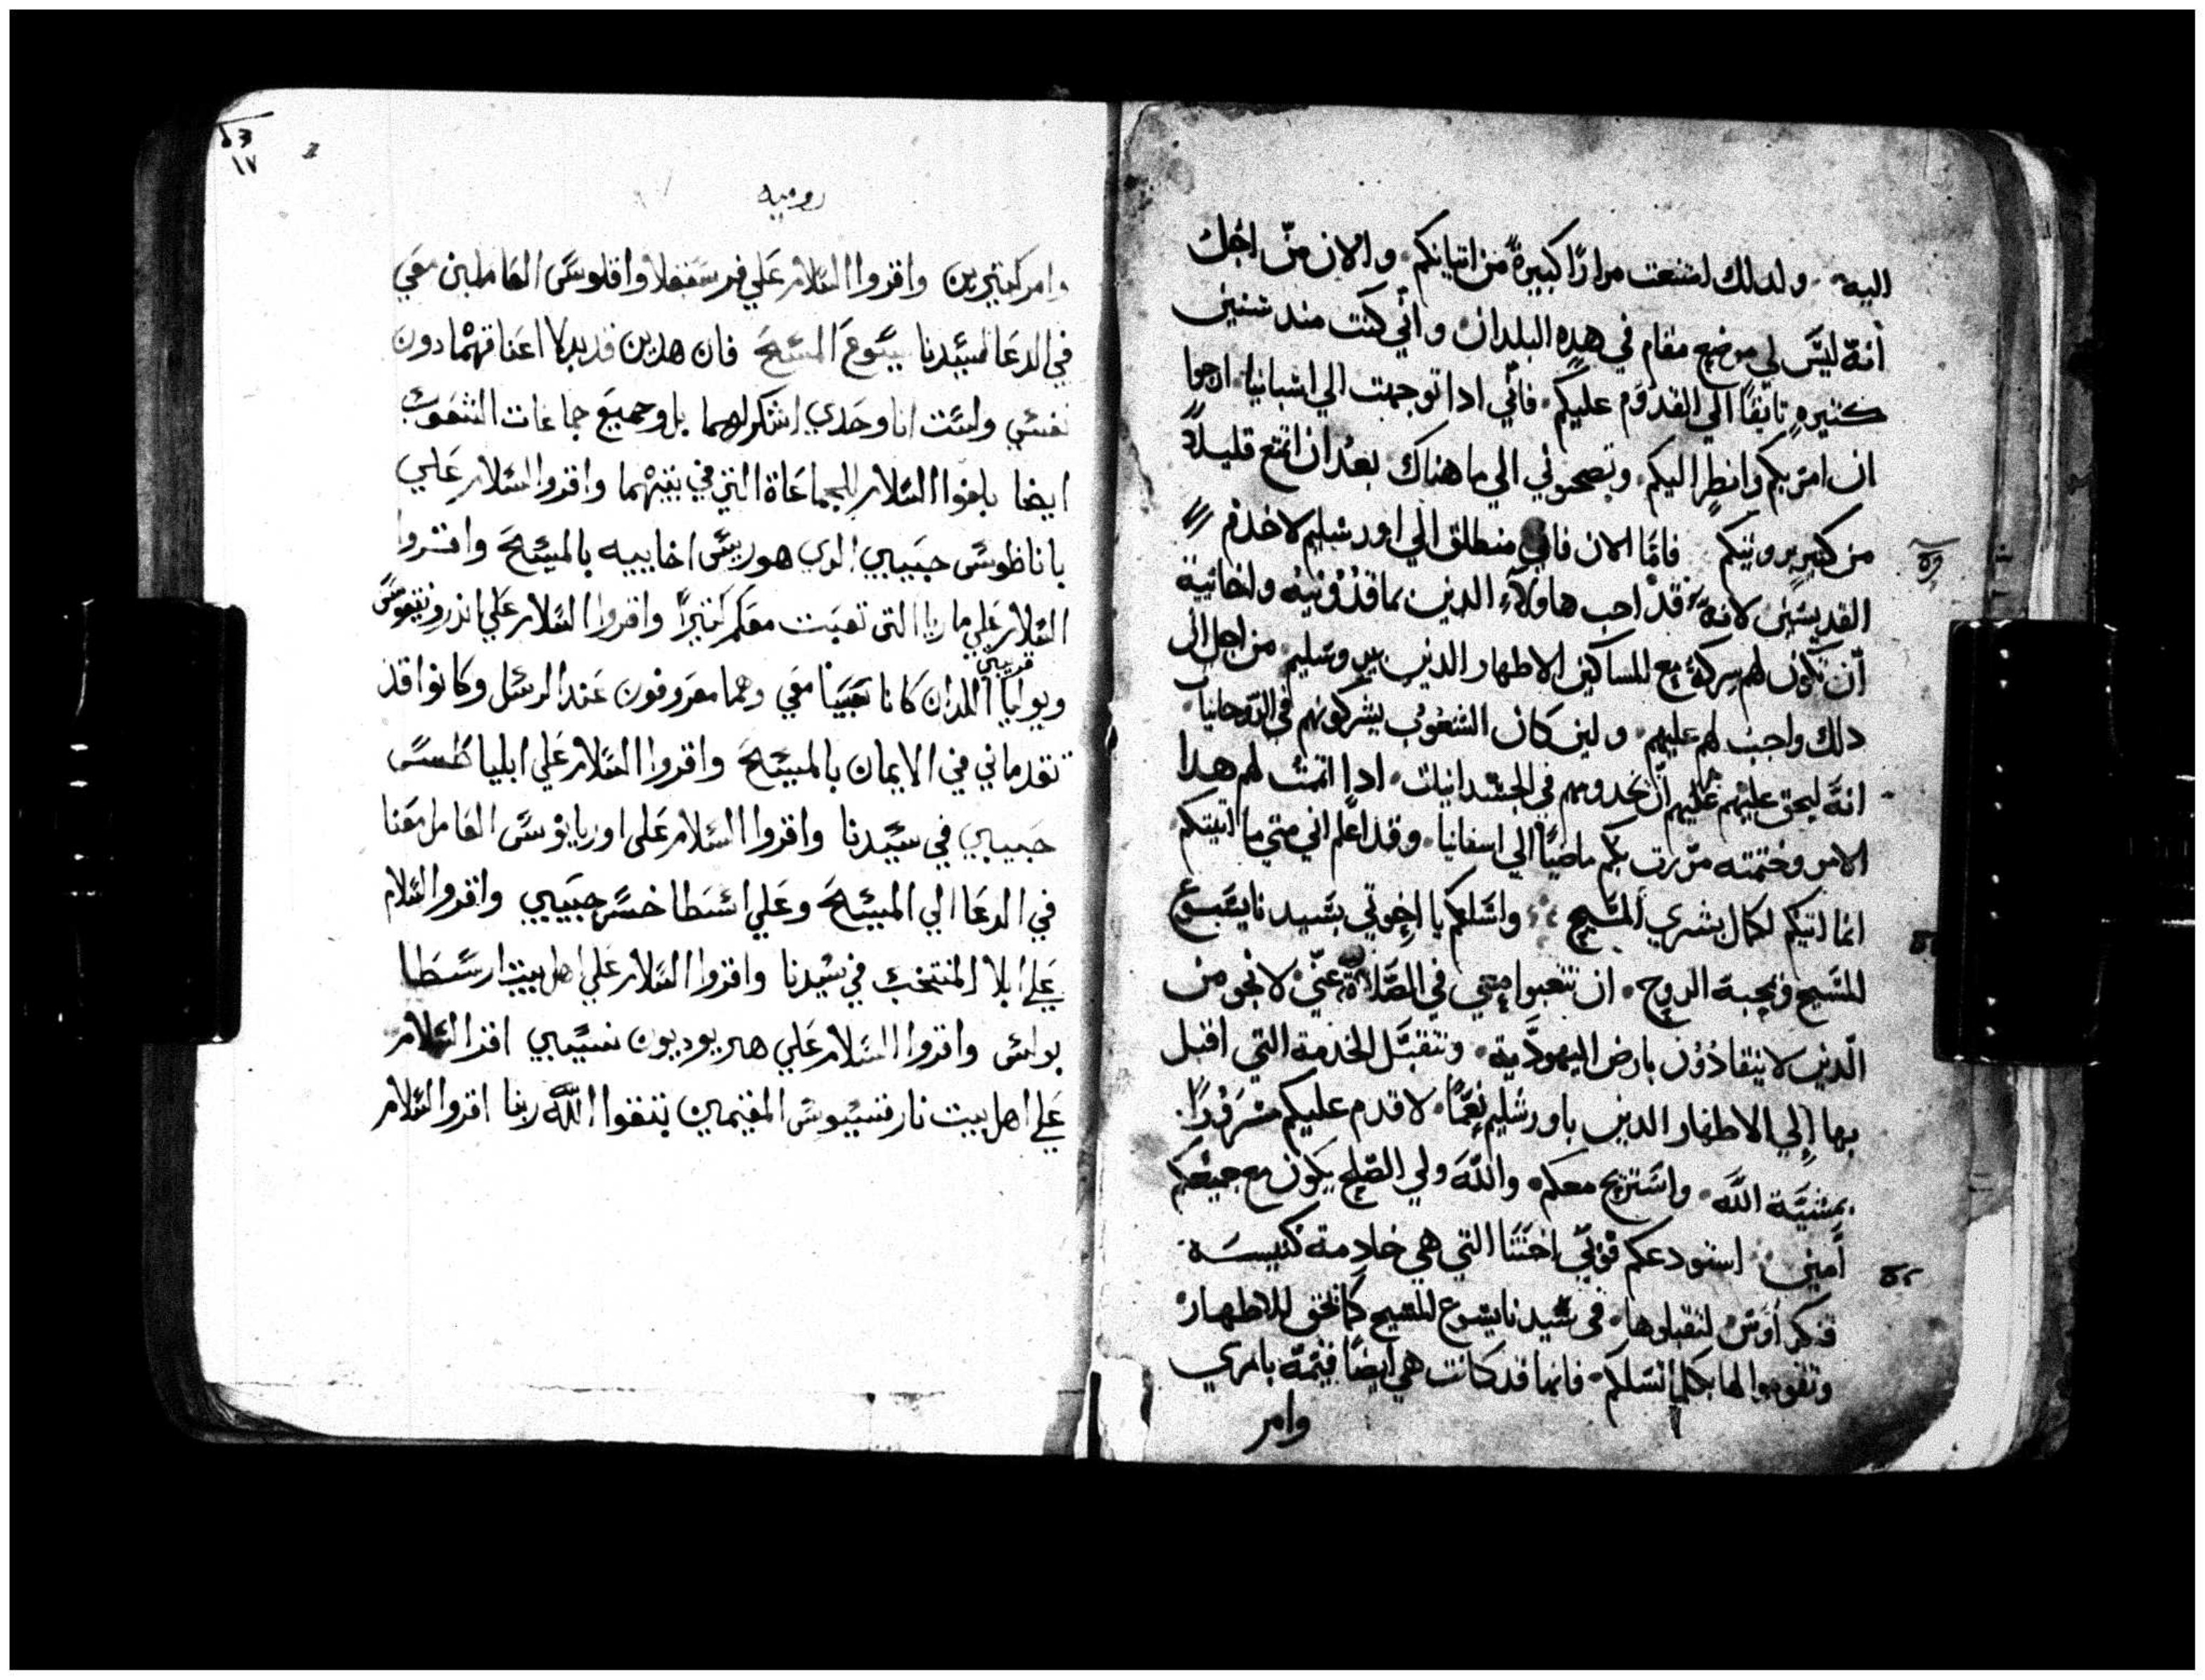 اليه ولدلك امتنعت مرارًا كبيرةً من اتيانكم والان من اجل
أنه ليس لي موضع مقام في هده البلدان وأني كنت مند سنين
كثيره تايقًا الي القدوم عليكم فأني ادا توجهت الي اسبانيا ارجوا
ان امر بكم وانظر اليكم وتصحبوني الي ما هناك بعد ان اتمتع قليلاً
من كبير رويتكم فامّا الان فاني منطلق الي اورشليم لاخدم
القديسين لانه قد احب هاولاء الدين بماقدونيه واخائية
أن تكون لهم شركة مع المساكين الاطهار الدين بيروشليم من اجل ان
دلك واجب لهم عليهم ولين كان الشعوب يشركونهم في الروحانيات
انه ليحق عليهم عليهم أن يخدموهم في الجسدانيات ادا اتممت لهم هدا
الامر وختمته مررت بكم ماضيًا الي اسفانيا وقد اعلم اني متي ما اتيتكم
انما اتيكم لكمال بشري المسيح واسلكم يا اخوتي بسيدنا يسوع
المسيح وبمحبة الروح ان تتعبوا معي في الصلاة عنّي لانجو من
الدين لا ينقادون بارض اليهوديه وتتقبل الخدمة التي اقبل
بها إلي الاطهار الدين باورشليم نعمًا لاقدم عليكم مسرورًا
بمشيّة الله واستريح معكم والله ولي الصلح يكون مع جميعكم
أمين استودعكم فوبي اختنا التي هي خادمة كنيسة
قنكراوس لتقبلوها في سيدنا يسوع المسيح كما يحق للاطهار
وتقوموا لها بكلما تسلكم فانها قد كانت هي ايضًا قيمة بامري
وامر
روميه
وامر كتيرين واقروا السلام علي فرسقفلا واقلوس العاملين معي
في الدعا لسيدنا يسوع المسيح فان هدين قد بدلا اعناقهما دون
نفسي ولست انا وحدي اشكرلهما بل وجميع جماعات الشعوب
ايضا بلغوا السلام للجماعاة التي في بيتهما واقروا السلام علي
باناطوس حبيبي الدي هو ريس اخاييه بالمسيح واقروا
السلام علي ماريا التي تعبت معكم كتيرًا واقروا السلام علي اندرونيقوس
ويوليا قريبي اللدان كانا سبيا معي وهما معروفون عند الرسل وكانوا قد
تقدماني في الايمان بالمسيح واقروا السلام علي ابلياطس
حبيبي في سيدنا واقروا السلام علي اوريانوس العامل معنا
في الدعا الي المسيح وعلي اسطاخس حبيبي واقروا السلام
علي ابلا المنتخب في سيدنا واقروا السلام علي اهل بيت ارسطا
بولس واقروا السلام علي هريوديون نسيبي اقرا السلام
علي اهل بيت نارقسيوس المقيمين بتقوا الله ربنا اقروا السلام